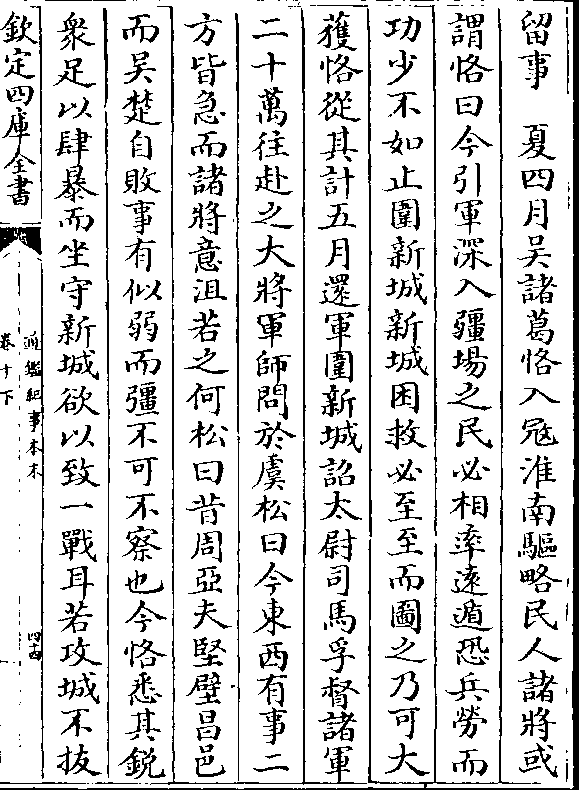 留事　夏四月吳諸葛恪入冦淮南驅略民人諸將或
謂恪曰今引軍深入疆場之民必相率遠遁恐兵勞而
功少不如止圍新城新城困救必至至而圖之乃可大
獲恪從其計五月還軍圍新城詔太尉司馬孚督諸軍
二十萬往赴之大將軍師問於虞松曰今東西有事二
方皆急而諸將意沮若之何松曰昔周亞夫堅壁昌邑
而吳楚自敗事有似弱而彊不可不察也今恪悉其銳
衆足以肆暴而坐守新城欲以致一戰耳若攻城不拔
欽定四庫全書
通鑑紀事本末
卷十下
四十四